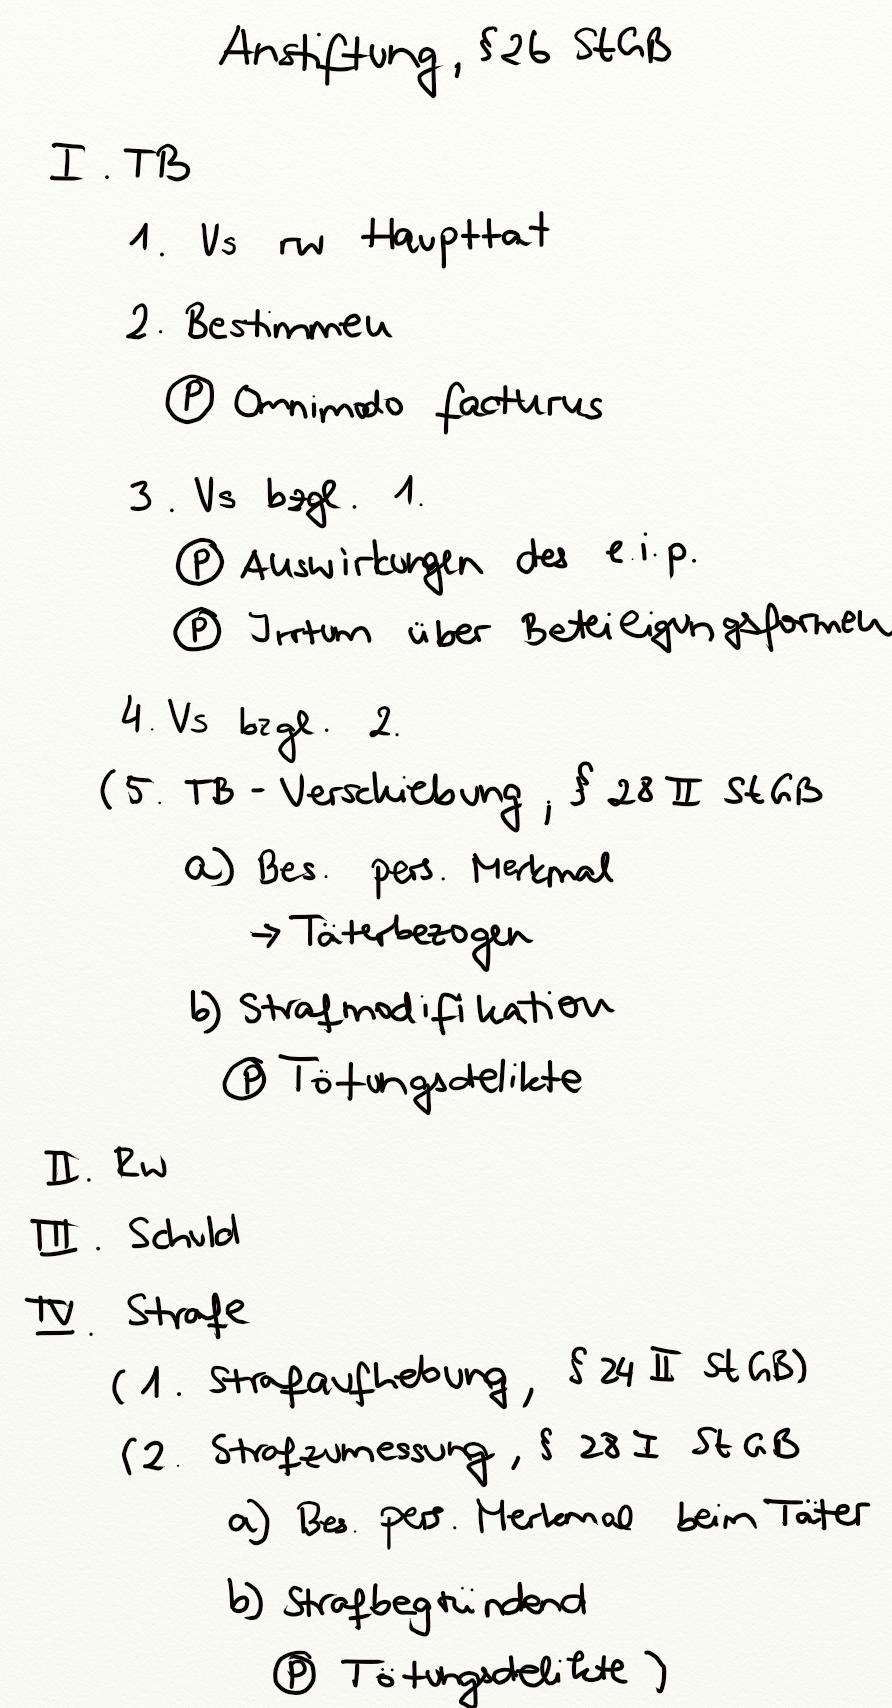 Anstiftung, § 26 StGB
I. TB
1. Vs rw Haupttat
2. Bestimmen
Ⓟ Omnimodo facturus
3. Vs bzgl. 1.
Ⓟ Auswirkungen des e.i.p.
Ⓟ Irrtum über Beteiligungsformen
4. Vs bzgl. 2.
(5. TB - Verschiebung, § 28 II StGB
a) Bes. pers. Merkmal
→ Täterbezogen
b) Strafmodifikation
Ⓟ Tötungsdelikte
II. Rw
III. Schuld
IV. Strafe
(1. Strafaufhebung, § 24 II StGB)
(2. Strafzumessung, § 28 I StGB
a) Bes. pers. Merkmal beim Täter
b) Strafbegründend
Ⓟ Tötungsdelikte)